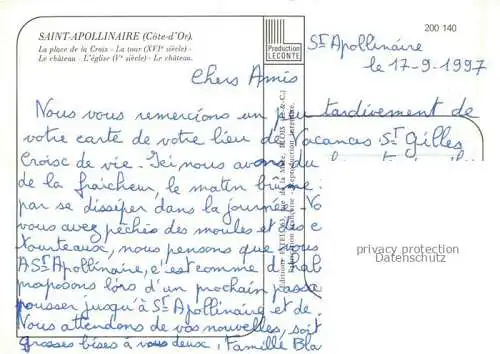 SAINT-APOLLINAIRE (Côte-d'Or).
La place de la Croix - La tour (XVIe siècle) -
Le château - L'église (Ve siècle) - Le château.
Production
LECONTE
200 140
St Apollinaire
le 17-9-1997
Chers Amis
Nous vous remercions un peu tardivement de
votre carte de votre lieu de Vacances St Gilles
Croisc de vie. Ici nous avons du
de la fraîcheur, le matin brûme
par se dissiper dans la journée. Vo
vous avez pêchés des moules et des c
tourteaux, nous pensons que vous
A St Apollinaire, c'est comme d'hab
proposons lors d'un prochain passa
pousser jusqu'à St Apollinaire et de
Nous attendons de vos nouvelles, soit
Grosses bises à vous deux, Famille Bla
privacy protection
CARDmaniac.ch